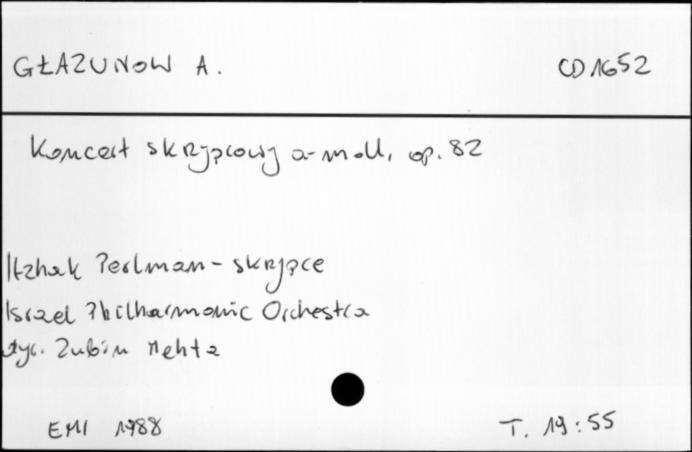 GŁAZUNOW A. CD 1652
Koncert skrzypcowy a-moll, op. 82
Itzhak Perlman - skrzypce
Israel Philharmonic Orchestra
dyr. Zubin Mehta
EMI 1988 T. 19:55